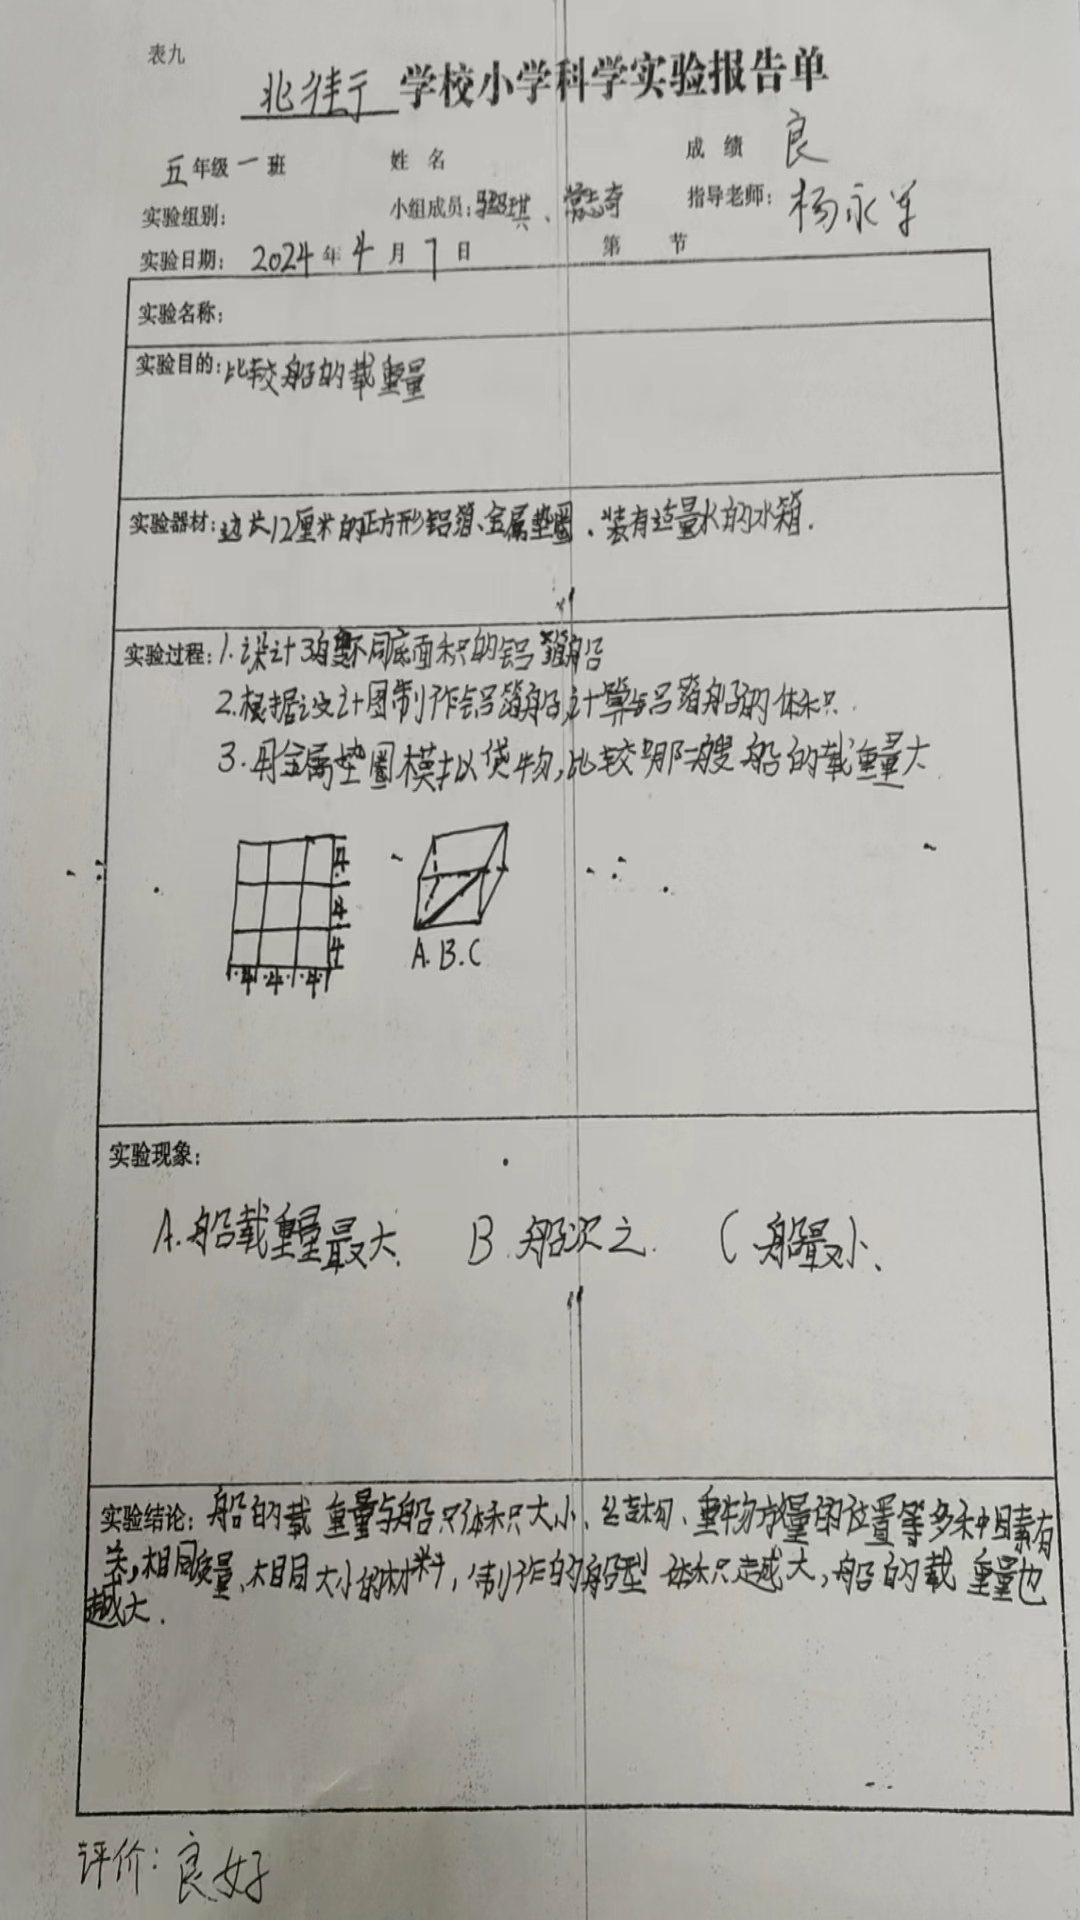 表九
北徍于学校小学科学实验报告单
五年级一班 姓 名 成 绩 良
实验组别: 小组成员: 、常志奇 指导老师: 杨永军
实验日期: 2024年4月7日 第 节
实验名称:
实验目的:比较船的载重量
实验器材:边长12厘米的正方形铝箔、金属垫圈、装有适量水的水箱.
实验过程:1.设计3种不同底面积的铝箔船
2.根据设计图制作铝箔船,计算铝箔船的体积.
3.用金属垫圈模拟货物,比较哪一艘船的载重量大
4
4
4
4 4 4
A.B.C
实验现象:
A.船载重量最大. B 船次之. C 船最小、
实验结论: 船的载重量与船只体积大小、结构、重物放置的位置等多种因素有
关,相同质量、相同大小的材料,制作的船型体积越大,船的载重量也
越大.
评价:良好